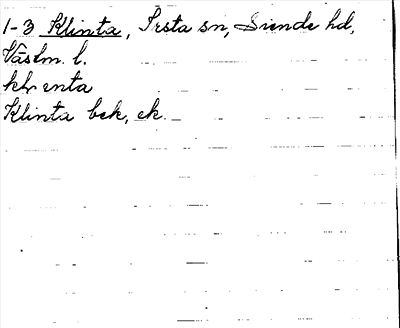 1-3 Klinta, Irsta sn, Siende hd,
Västm. l.
klenta
Klinta bek, ek.